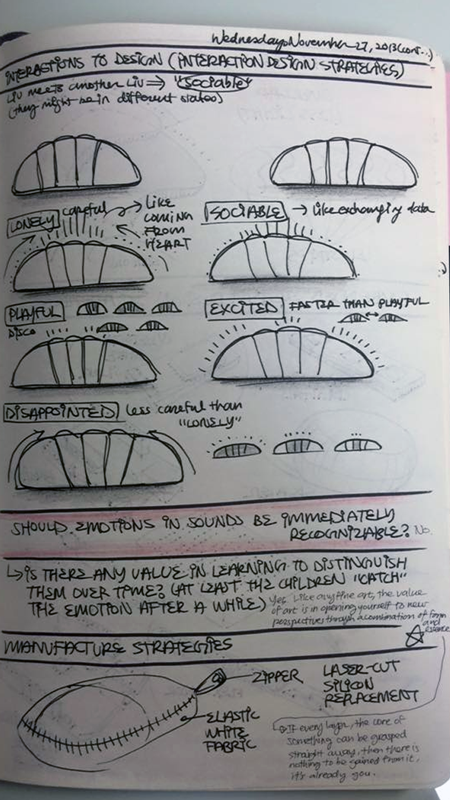 Wednesday, November 27, 2013 (cont...)
INTERACTIONS TO DESIGN (INTERACTION DESIGN STRATEGIES)
LIV meets another LIV ⇒ "sociable"
(they might be in different states)
LONELY careful → Like COMING FROM HEART
SOCIABLE → Like exchanging data
PLAYFUL
DISCO
EXCITED FASTER THAN PLAYFUL
DISAPPOINTED Less careful than "LONELY"
SHOULD EMOTIONS IN SOUNDS BE IMMEDIATELY
RECOGNIZABLE? No.
↳ IS THERE ANY VALUE IN LEARNING TO DISTINGUISH
THEM OVER TIME? (AT LEAST THE CHILDREN "CATCH"
THE EMOTION AFTER A WHILE) Yes. Like any fine art, the value
of art is in opening yourself to new
perspectives through a combination of form
and
essence
MANUFACTURE STRATEGIES
ZIPPER
ELASTIC
WHITE
FABRIC
LASER-CUT
SILICON
REPLACEMENT
If every layer, the core of
something can be grasped
straight away, then there is
nothing to be gained from it.
it's already you.